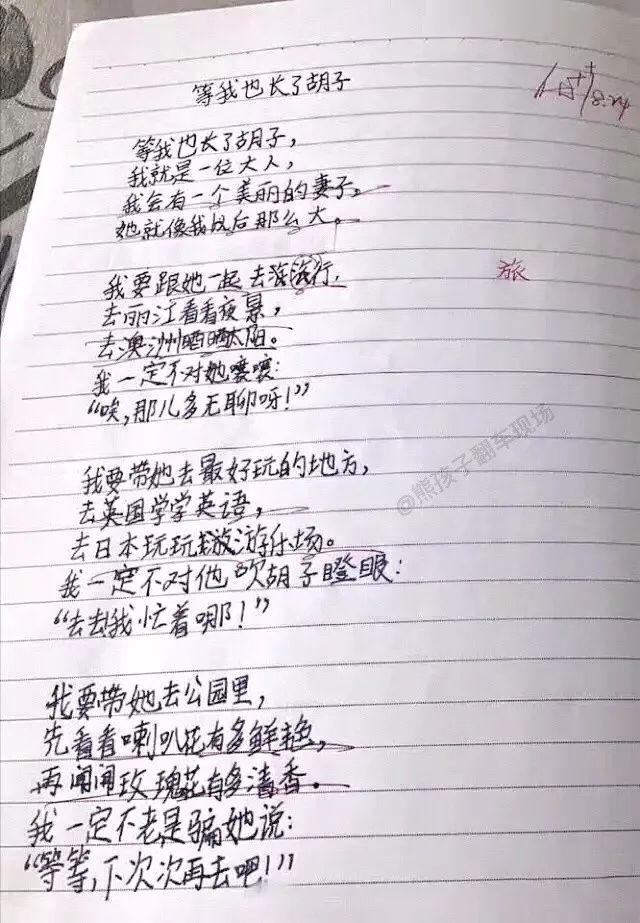 等我也长了胡子
等我也长了胡子，
我就是一位大人，
我会有一个美丽的妻子。
她就像我以后那么大。
我要跟她一起去行，
旅
去丽江看看夜景，
去澳洲晒晒太阳。
我一定不对她嚷嚷：
“唉，那儿多无聊呀！”
我要带她去最好玩的地方，
去英国学学英语，
去日本玩玩游乐场。
我一定不对他吹胡子瞪眼：
“去去我忙着哪！”
我要带她去公园里，
先看看喇叭花有多鲜艳，
再闻闻玫瑰花有多清香。
我一定不老是骗她说：
“等等，下次次再去吧！”
8.24
@熊孩子翻车现场